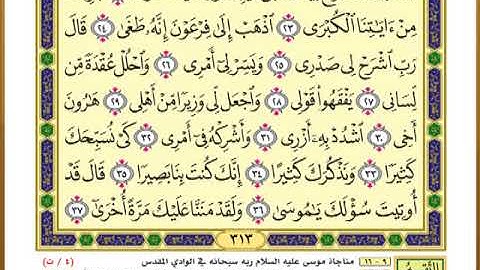 مِنْ ءَايَٰتِنَا ٱلْكُبْرَى ٢٣ ٱذْهَبْ إِلَىٰ فِرْعَوْنَ إِنَّهُۥ طَغَىٰ ٢٤ قَالَ
رَبِّ ٱشْرَحْ لِى صَدْرِى ٢٥ وَيَسِّرْ لِىٓ أَمْرِى ٢٦ وَٱحْلُلْ عُقْدَةً مِّن
لِّسَانِى ٢٧ يَفْقَهُوا۟ قَوْلِى ٢٨ وَٱجْعَل لِّى وَزِيرًا مِّنْ أَهْلِى ٢٩ هَٰرُونَ
أَخِى ٣٠ ٱشْدُدْ بِهِۦٓ أَزْرِى ٣١ وَأَشْرِكْهُ فِىٓ أَمْرِى ٣٢ كَىْ نُسَبِّحَكَ
كَثِيرًا ٣٣ وَنَذْكُرَكَ كَثِيرًا ٣٤ إِنَّكَ كُنتَ بِنَا بَصِيرًا ٣٥ قَالَ قَدْ
أُوتِيتَ سُؤْلَكَ يَٰمُوسَىٰ ٣٦ وَلَقَدْ مَنَنَّا عَلَيْكَ مَرَّةً أُخْرَىٰٓ ٣٧
٣١٣
٩ - ١٦ مناجاة موسى عليه السلام ربه سبحانه في الوادي المقدس (٤ / ت)